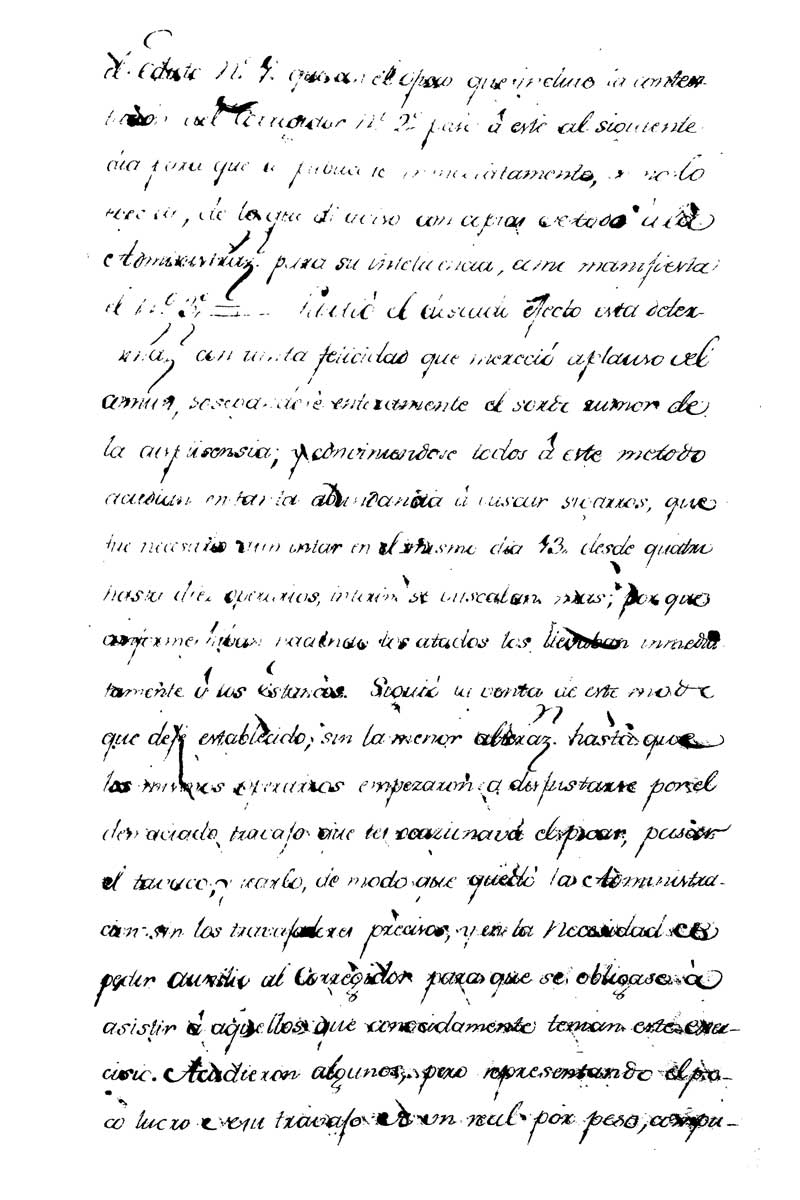 el Edicto N.º 1. que con el oficio que incluio la contes-
tacion del Corregidor N.º 2.º pasé á este al siguiente
dia para que se publicase inmediatamente, y no lo
de lo que di aviso con copias de todo á la
Administraz.n para su inteligencia, como manifiesta
el N.º 3.º = Surtió el efecto esta deter-
minaz.n con tanta felicidad que mereció aplauso del
comun, sosegandose enteramente el sordo rumor de
la displisensia; y conviniendose todos á este metodo
acudian en tanta abundancia á buscar sigarros, que
fue necesario aumentar en el mismo dia 13. desde quatro
hasta diez operarios, interin se buscaban mas; por que
conforme iban haciendo los atados los llevaban inmedia-
tamente á los Estancos. Siguió la venta de este modo
que dejé establecido, sin la menor alteraz.n hasta que
los mismos operarios empezaron a disgustarse por el
demaciado travajo que les ocacionava el picar, pasar
el tavaco, y liarlo, de modo que quedó la Administra-
cion sin los travajadores précisos, y en la necesidad de
pedir auxilio al Corregidor para que se obligase à
asistir á aquellos que conocidamente tenian este exer-
cicio. Acudieron algunos, pero representando el po-
co lucro de su travajo de un real por peso, compu-